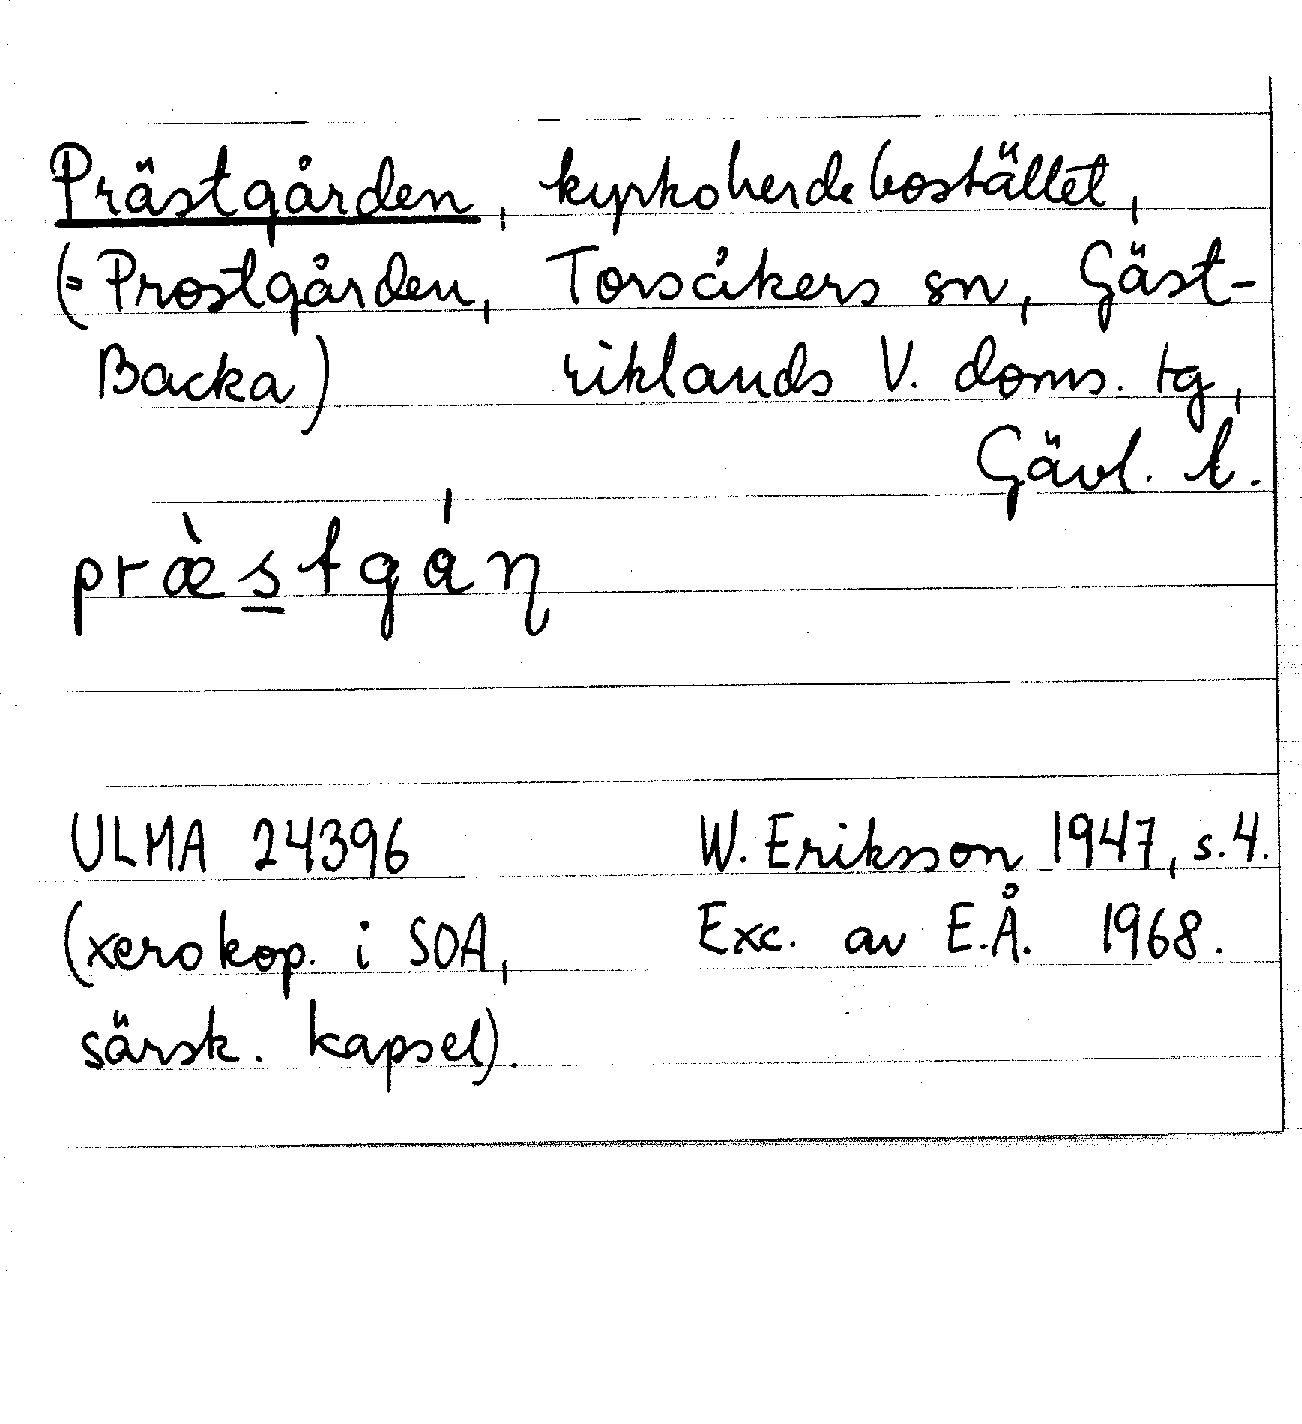 Prästgården, kyrkoherdebostället,
(= Prostgården, Torsåkers sn, Gäst-
Backa) riklands V. doms. tg,
Gävl. l.
præ̀s̲tgán
ULMA 24396 W. Eriksson 1947, s. 4.
(xerokop. i SOA, Exc. av E.Å. 1968.
särsk. kapsel).